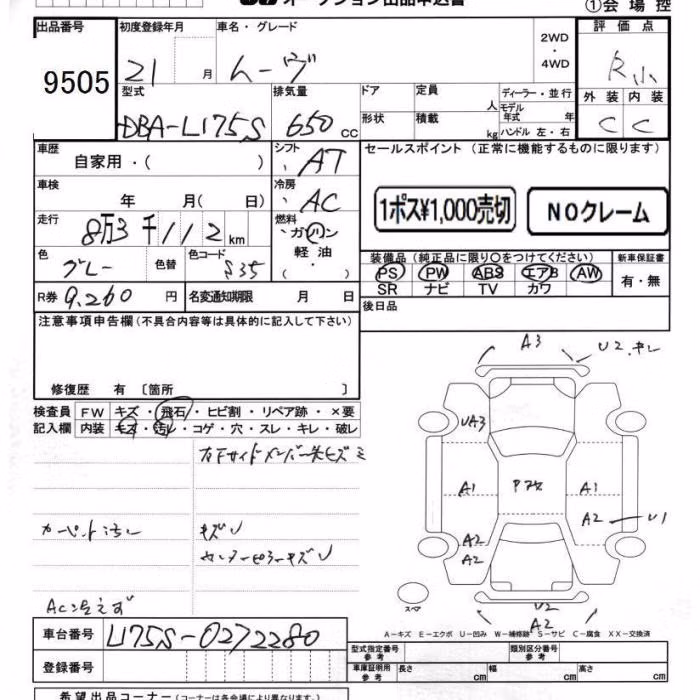 オークション出品申込書
①会場控
出品番号 初度登録年月 車名・グレード 2WD・4WD 評価点
9505 21 月 ムーヴ R小
型式 排気量 ドア 定員 人 ディーラー・並行 外装 内装
DBA-L175S 650 cc 形状 積載 kg モデル年式 年 ハンドル 左・右 C C
車歴 自家用・( ) シフト AT セールスポイント (正常に機能するものに限ります)
車検 年 月( 日) 冷房 AC 1ポス¥1,000売切 NOクレーム
走行 8万3千112 km 燃料 ガソリン 軽油 ( ・ )
色 グレー 色替 色コード S35 装備品 (純正品に限り○をつけてください) 新車保証書
PS PW ABS エアB AW 有・無
SR ナビ TV カワ
R券 9,260 円 名変通知期限 月 日 後日品
注意事項申告欄(不具合内容等は具体的に記入して下さい)
修復歴 有 〔箇所 〕
検査員 FW キズ・飛石・ヒビ割・リペア跡・×要
記入欄 内装 キズ・汚れ・コゲ・穴・スレ・キレ・破レ
A3 U2.キレ
UA3
A1 Pアス A1
A2 U1
A2
A2
スペア
U2
A2
カーペット汚レ キズU
ACガス
A-キズ E-エクボ U-凹み W-補修跡 S-サビ C-腐食 XX-交換済
車台番号 L175S-0272280 型式指定番号 参考 類別区分番号 参考
登録番号 車庫証明用 参考 長さ cm 幅 cm 高さ cm
希望出品コーナー(コーナーは各会場により異なります)